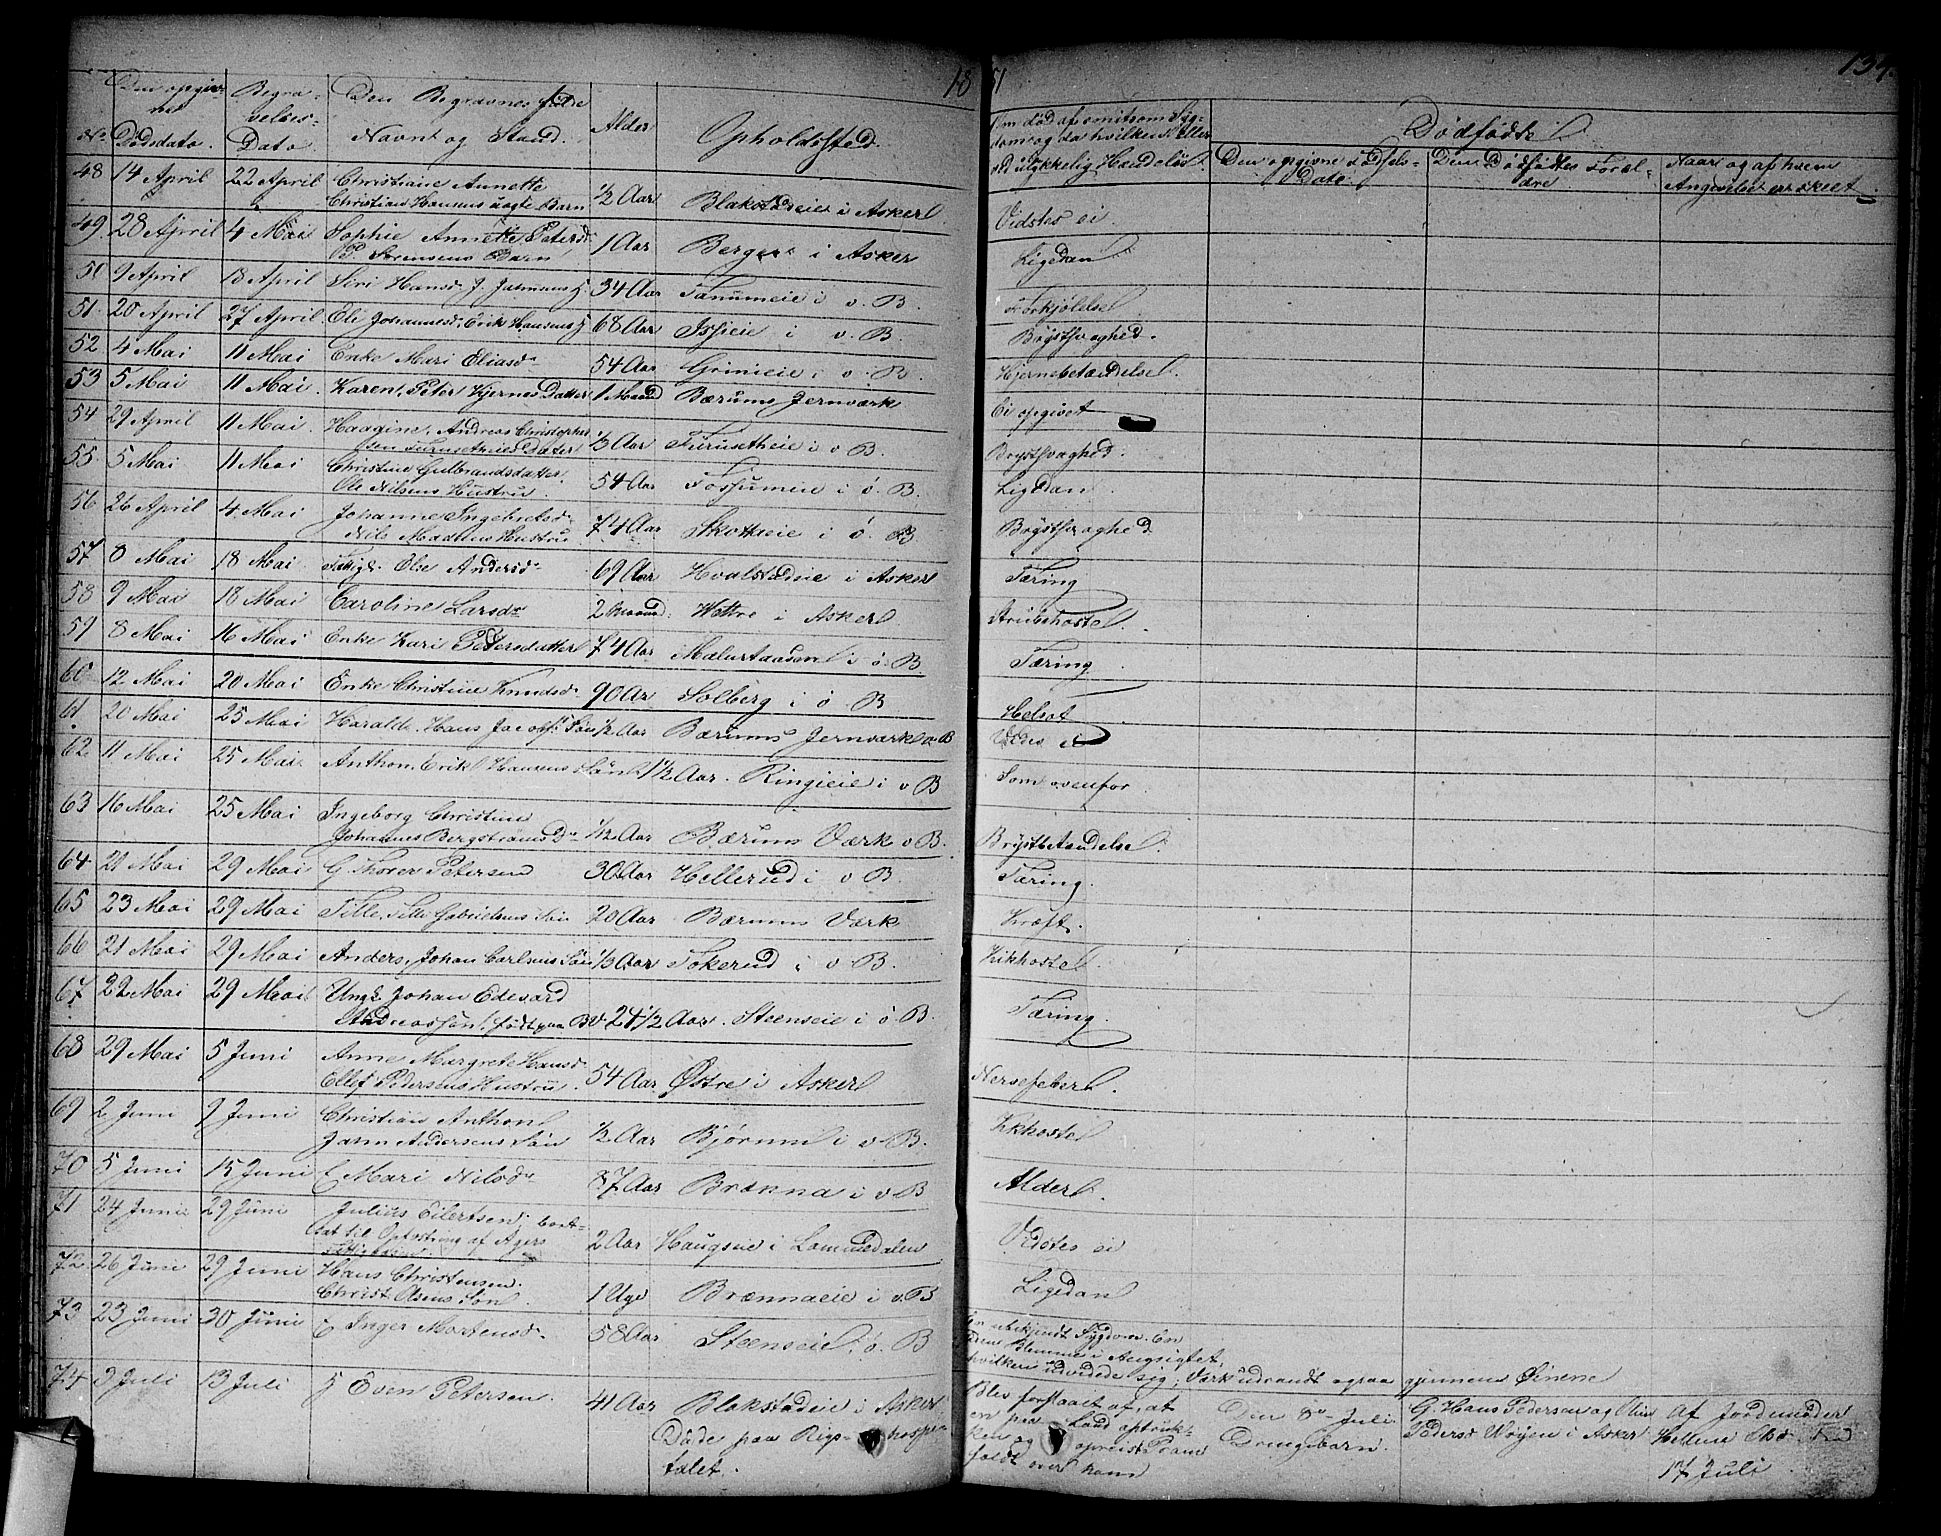 1851
134.
No
Den opgivne Dødsdato.
Begravelses-Dato
Den Begravnes fulde Navn og Stand.
Alder
Opholdssted.
Om død af smitsom Sygdom og da hvilken eller ved ulykkelig Hændelse.
Dødfødte
Den opgivne Fødsels-Dato.
Den Dødfødtes Forældre
Naar og af hvem Angivelse er skeet.
48 14 April 22 April Christiane Annette
Christians Hansens uægte Barn 1/2 Aar Blakstadeie i Asker Vidstes ei
49. 28 April 4 Mai Sophie Annette Petersdr
P. Sørensens Barn 1 Aar Berger i Asker Ligedan
50 9 April 13 April Siri Hansdr J. Jahnsens H. 34 Aar Tanumeie i v. B. Forkjølelse
51. 20 April 27 April. Eli Johannesdr. Erik Hansens H 68 Aar Isieie i v. B. Brystsvaghed.
52 4 Mai 11 Mai Enke Mari Eliasdr 54 Aar Grinieie i v. B. Hjernebetændelse.
53 5 Mai 11 Mai. Karen, Peter Kjernes Datter 1 Maaned Bærums Jernværk Ei opgivet
54 29 April 11 Mai. Haagine, Andreas Christopher
sen Furuseteies Datter 1/3 Aar Furusetheie i v B. Brystsvaghed.
55 5 Mai 11 Mai Christine Gulbrandsdatter
Ole Nilsens Hustru. 54 Aar Fossumeie i ø. B. Ligedan
56 26 April 4. Mai Johanne Ingebretsdr
Nils Madsens Hustru 74 Aar Skotteeie i ø. B Brystsvaghed
57 8 Mai 18 Mai. Fattigl. Else Andersdr 69 Aar Hvalstadeie i Asker Tæring
58 9 Mai 18 Mai Caroline Larsdr 2 Maaned. Hættre i Asker Strubehoste
59 8 Mai 16 Mai Enke Kari Petersdatter 74 Aar i ø. B Tæring
60 12 Mai 20 Mai Enke Christine Knudsdr 90 Aar Solberg i ø B Helsot
61. 20 Mai 25 Mai Haralde. Hans Jacobs. Søn 1/2 Aar Bærums Jernværk v. B Vides ei
62. 11 Mai 25 Mai Anthon. Erik Hansens Søn 1 1/2 Aar. Ringieie i v B Som ovenfor
63 16 Mai 25 Mai Ingeborg Christine
Johannes Bergstrøms Dr 1/12 Aar Bærums Værk v B. Brystbetændelse
64 21 Mai 29 Mai G. Thorer Petersen 30 Aar Hellerud i v B. Tæring.
65 23 Mai 29 Mai Tille, Tille Gabrielsens Søn 20 Aar Bærums Værk Kræft.
66 21 Mai 29 Mai Anders, Johan Carlsens Søn 1/3 Aar Tokerud i v B. Kikhoste
67 22 Mai 29 Mai Ungk. Johan Edevard
Andreassøn, født paa 24 1/2 Aar. Steenseie i ø B. Tæring.
68 29 Mai 5 Juni Anne Margrete Hansdr
Ellef Pedersens Hustru. 54 Aar Østre i Asker Nervefeber
69 2 Juni 9 Juni Christian Anthon
Jahn Andersens Søn 1/2 Aar Bjørum i v B. Kikhoste
70 5 Juni 15 Juni E Mari Nilsdr 87 Aar Brækna i v B Alder.
71 24 Juni 29 Juni Julius Eilertsen, bort-
sat til Opfostring af Agers
2 Aar Haugseie i Lommedalen Vidstes ei
72 26 Juni 29 Juni Hans Christensen.
Christ. Olsens Søn 1 Uge Brænnaeie i v. B Ligedan
73 23 Juni 30 Juni E Inger Mortensdr 58 Aar Steenseie i ø. B En ubekjendt Sygdom. En
Blemme i Ansigtet,
hvilken udvidede sig; Værk udrandt ogsaa gjennem Øinene
74 3 Juli 13 Juli G Even Petersen. 41 Aar Blakstadeie i Asker
Døde paa Rigshospi-
talet. Blev forslaaet af, at
en paa Land optruk-
ken og opreist Pram
faldt over ham
Den 8de Juli
Drengebarn.
G. Hans Pedersen og
Pedersd Wøyen i Asker
af Jordemoder
Hellene
17 Juli